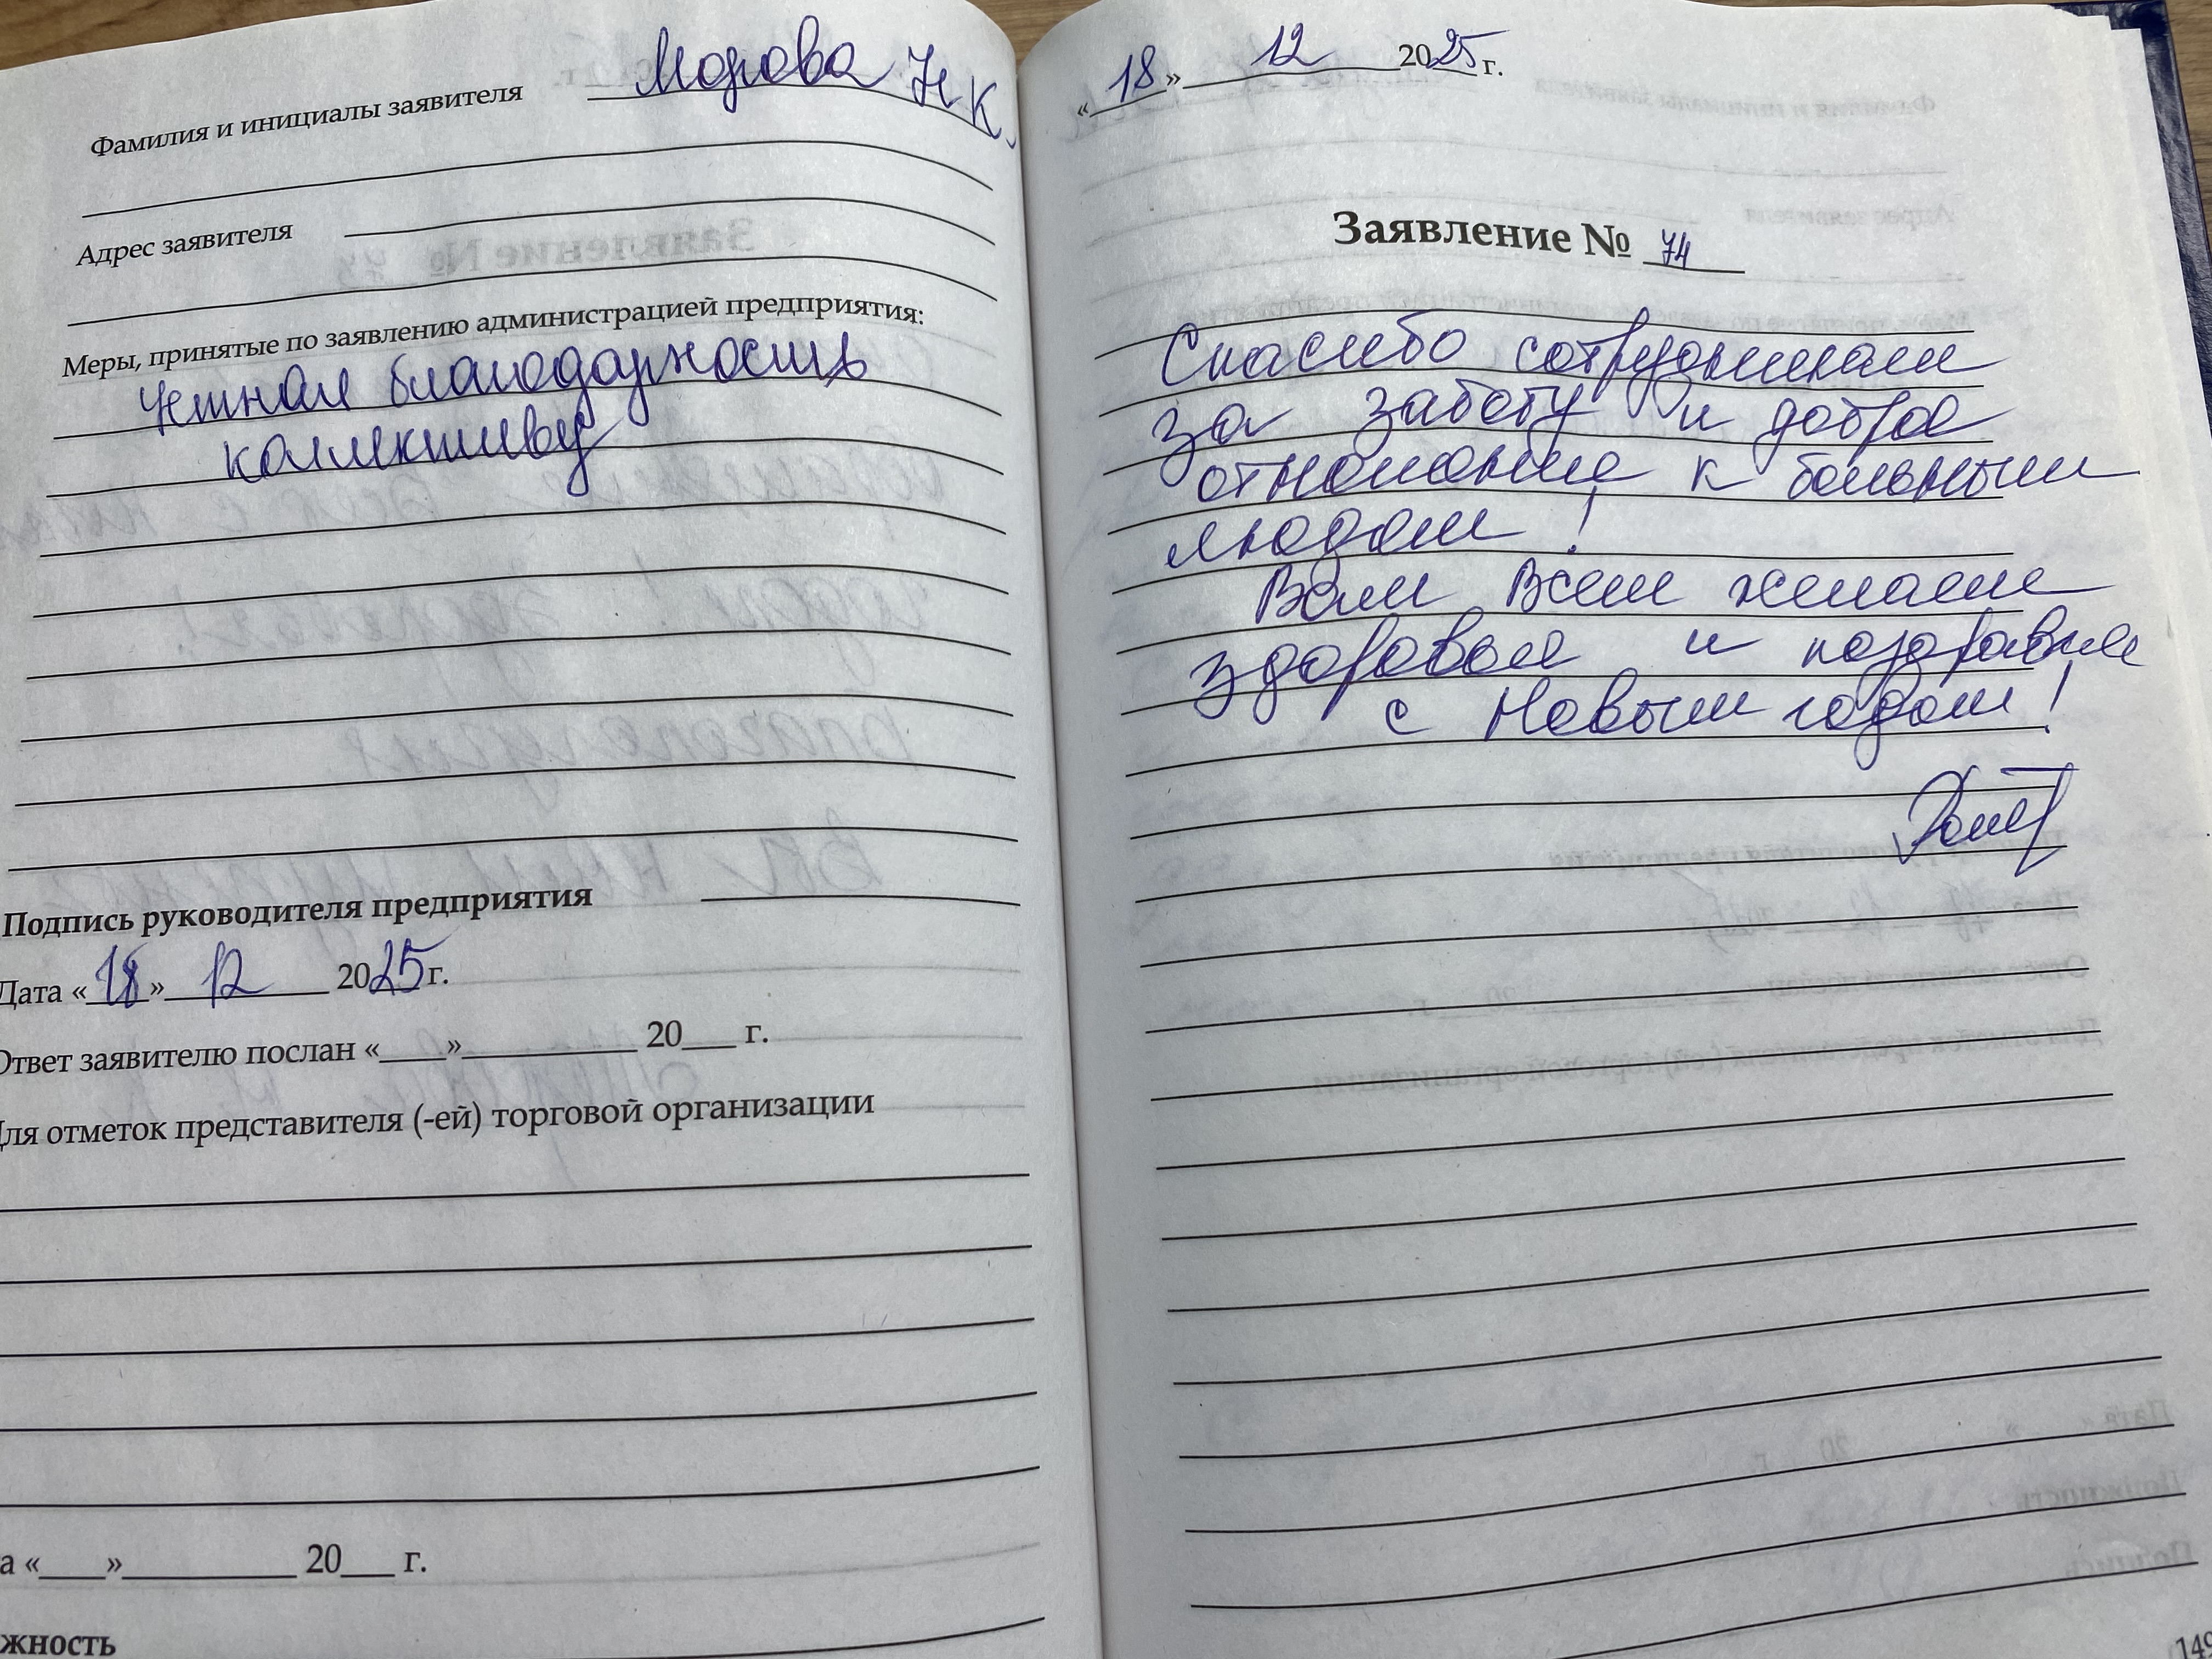 Фамилия и инициалы заявителя Морова Н К.
Адрес заявителя
Меры, принятые по заявлению администрацией предприятия:
Устная благодарность
коллективу
Подпись руководителя предприятия
Дата «18» 12 2025 г.
Ответ заявителю послан «___»_________ 20___ г.
Для отметок представителя (-ей) торговой организации
а «___»_________ 20___ г.
жность
«18» 12 2025 г.
Заявление № 74
Спасибо сотрудникам
за заботу и доброе
отношение к больным
людям!
Вам всем желаем
здоровья и поздравляем
с Новым годом!
149